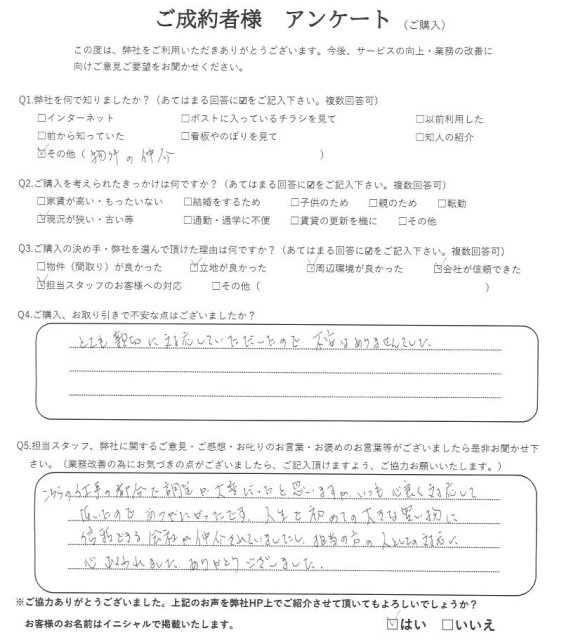 ご成約者様　アンケート（ご購入）
この度は、弊社をご利用いただきありがとうございます。今後、サービスの向上・業務の改善に
向けご意見ご要望をお聞かせください。
Q1.弊社を何で知りましたか？（あてはまる回答に☑をご記入下さい。複数回答可）
☐インターネット　☐ポストに入っているチラシを見て　☐以前利用した
☐前から知っていた　☐看板やのぼりを見て　☐知人の紹介
☑その他（物件の仲介）
Q2.ご購入を考えられたきっかけは何ですか？（あてはまる回答に☑をご記入下さい。複数回答可）
☐家賃が高い・もったいない　☐結婚をするため　☐子供のため　☐親のため　☐転勤
☑現況が狭い・古い等　☐通勤・通学に不便　☐賃貸の更新を機に　☐その他
Q3.ご購入の決め手・弊社を選んで頂けた理由は何ですか？（あてはまる回答に☑をご記入下さい。複数回答可）
☐物件（間取り）が良かった　☑立地が良かった　☑周辺環境が良かった　☑会社が信頼できた
☑担当スタッフのお客様への対応　☐その他（　）
Q4.ご購入、お取り引きで不安な点はございましたか？
とても親切に対応していただいたので 不安はありませんでした
Q5.担当スタッフ、弊社に関するご意見・ご感想・お叱りのお言葉・お褒めのお言葉等がございましたら是非お聞かせ下
さい。（業務改善の為にお気づきの点がございましたら、ご記入頂けますよう、ご協力お願いいたします。）
こちらの仕事の都合で調整が大変だったと思いますが、いつも心良く対応して
頂いたので ありがたかったです。人生で初めての大きな買い物に
信頼できる会社が仲介されていましたし、担当の方の人としての対応に
心 ありがとうございました。
※ご協力ありがとうございました。上記のお声を弊社HP上でご紹介させて頂いてもよろしいでしょうか？
お客様のお名前はイニシャルで掲載いたします。　☑はい　☐いいえ